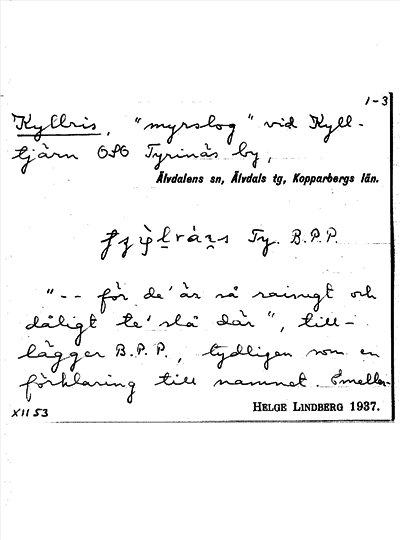 1-3
Kyllris, "myrslog" vid Kyll-
tjärn OSO Tyrinäs by,
Älvdalens sn, Älvdals tg, Kopparbergs län.
Ty. B.P.P.
"-- för de' är så raisugt och
dåligt te' slå där", till-
lägger B.P.P., tydligen som en
förklaring till namnet. Emeller-
XII 53
HELGE LINDBERG 1937.